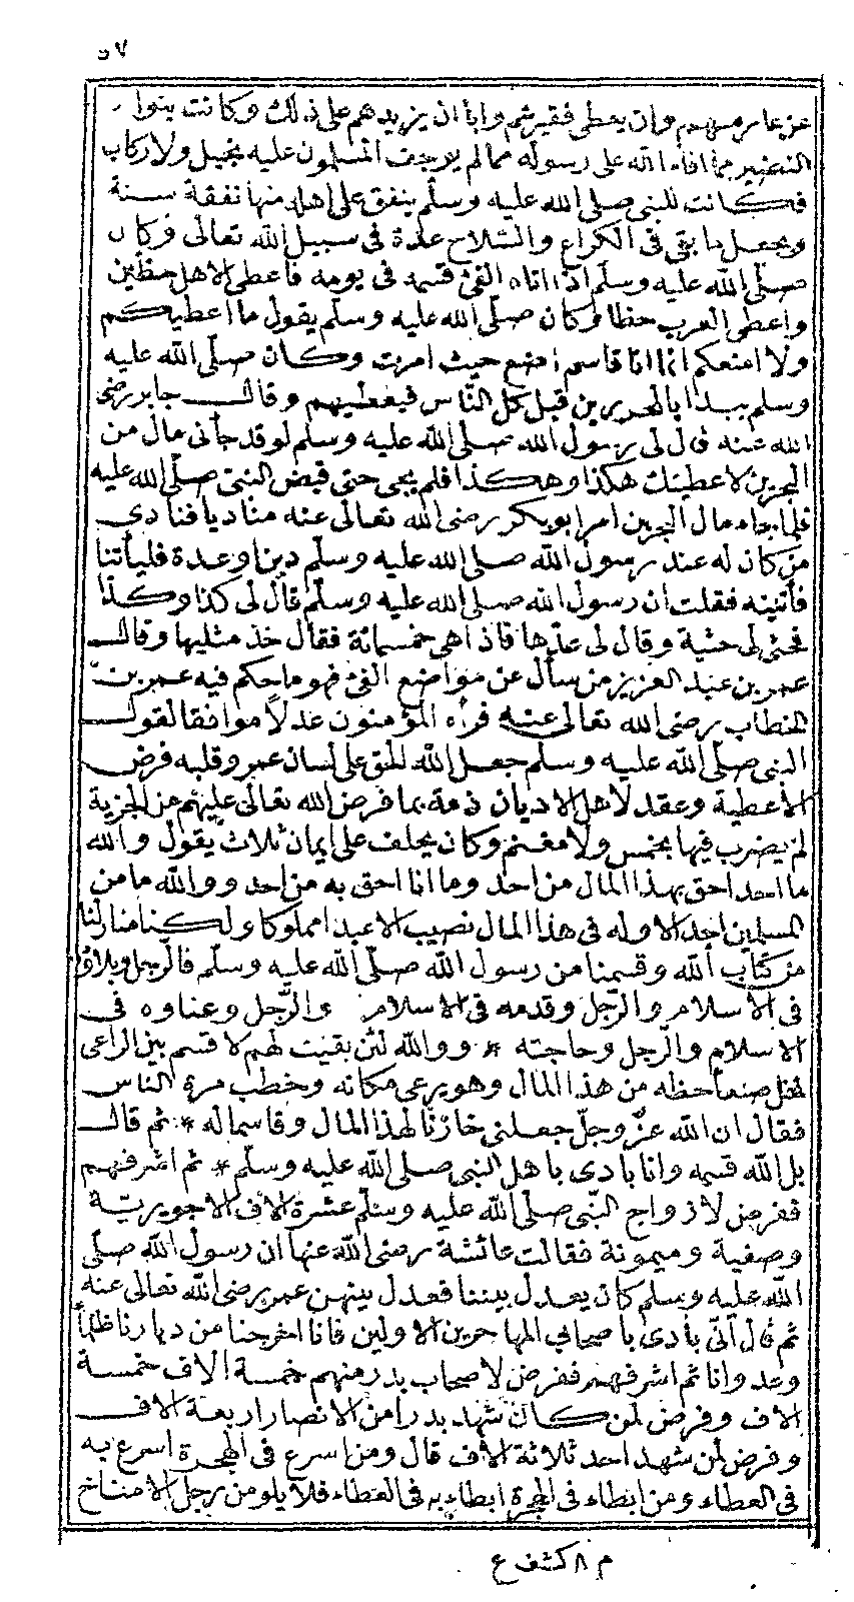 ٥٧
عن عامر منهم وان يعطى فقيرهم وابا ان يزيدهم على ذلك وكانت بنوا
النضير مما افاء الله على رسوله مما لم يوجف المسلمون عليه بخيل ولا ركاب
فكانت للنبى صلى الله عليه وسلم ينفق على اهله منها نفقة سنة
ويجعل ما بقى فى الكراع والسّلاح عدّة فى سبيل الله تعالى فكان
صلّى الله عليه وسلّم اذا اتاه الفئ قسمه فى يومه فاعطى الاهل حظّين
واعطى العرب حظا وكان صلّى الله عليه وسلّم يقول ما اعطيكم
ولا امنعكم انما انا قاسم اضع حيث امرت وكان صلّى الله عليه
وسلم يبدا بالمحررين قبل كل النّاس فيعطيهم وقال جابر رضى
الله عنه قال لى رسول الله صلّى الله عليه وسلم لو قد جاءنى مال من
البحرين لاعطيتك هكذا وهكذا فلم يجى حتى قبض النبىّ صلّى الله عليه
فلما جاء مال البحرين امر ابو بكر رضى الله تعالى عنه مناديا فنادى
من كان له عند رسول الله صلى الله عليه وسلّم دين او عدة فلياتنا
فأتيته فقلت ان رسول الله صلى الله عليه وسلّم قال لى كذا وكذا
فحثى لى حثية وقال لى عدّها فاذا هى خمسمائة فقال خذ مثليها وقال
عمر بن عبد العزيز من سأل عن مواضع الفئ فهو ما حكم فيه عمر بن
الخطاب رضى الله تعالى عنه فرأه المؤمنون عدلاً موافقا لقول
النبى صلّى الله عليه وسلّم جعل الله الحق على لسان عمر وقلبه فرض
الأعطية وعقد لاهل الاديان ذمة بما فرض الله تعالى عليهم من الجزية
لم يضرب فيها بخمس ولا مغنم وكان يحلف على ايمان ثلاث يقول والله
ما احد احق بهذا المال من احد وما انا احق به من احد ووالله ما من
المسلمين احد الا وله فى هذا المال نصيب الا عبدا مملوكا ولكنا منازلنا
من كتاب الله وقسمنا من رسول الله صلّى الله عليه وسلّم فالرّجل وبلاؤه
فى الاسلام والرّجل وقدمه فى الاسلام والرّجل وعناوه فى
الاسلام والرّجل وحاجته * ووالله لئن بقيت لهم لاقسم بين الراعى
بجبل صنعا حظه من هذا المال وهو يرعى مكانه وخطب مرة الناس
فقال ان الله عزّ وجلّ جعلنى خازنا لهذا المال وقاسما له * ثم قال
بل الله قسمه وانا بادى باهل النبى صلى الله عليه وسلّم * ثم اشرفهم
ففرض لازواج النّبى صلّى الله عليه وسلّم عشرة الاف الا جويريّة
وصفية وميمونة فقالت عائشة رضى الله عنها ان رسول الله صلّى
الله عليه وسلم كان يعدل بيننا فعدل بينهن عمر رضى الله تعالى عنه
ثم قال انّى بادى باصحابى المهاجرين الاولين فانا اخرجنا من ديارنا ظلماً
وعدوانا ثم اشرفهم ففرض لاصحاب بدر منهم خمسة الاف خمسة
الاف وفرض لمن كان شهد بدراً من الانصار اربعة الاف
وفرض لمن شهد احد ثلاثة الاف قال ومن اسرع فى الهجرة اسرع به
فى العطاء ومن ابطاء فى الهجرة ابطاء به فى العطاء فلا يلومن رجل الا مناخ
م ٨ كشف ع